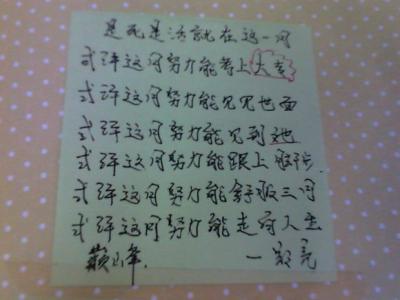 是死是活就在这一周
或许这周努力能考上大专
或许这周努力能见见世面
或许这周努力能见到她
或许这周努力能跟上脚步
或许这周努力能舒服三周
或许这周努力能走向人生
巅峰. 一 亮